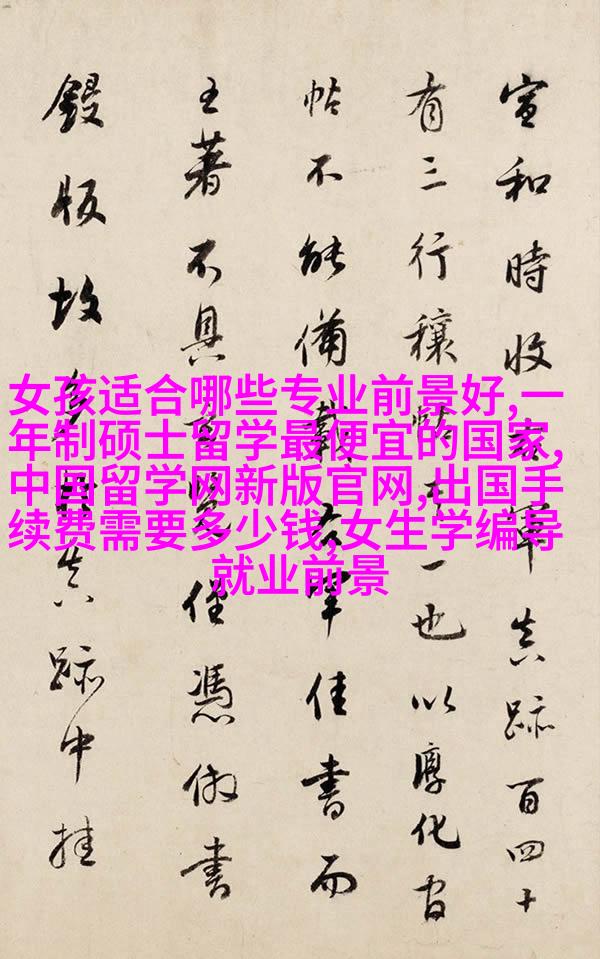 宣和時收右軍真跡百四十
有三行穰帖其一也以淳化官
帖不能備載右軍佳書而
王著不具憑倣書
鋟版故多真跡中挂
女孩适合哪些专业前景好,一
年制硕士留学最便宜的国家,
中国留学网新版官网,出国手
续费需要多少钱,女生学编导
就业前景